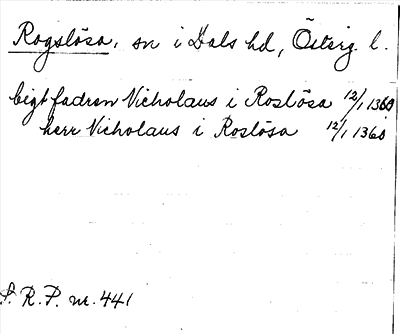 Rogslösa, sn i Dals hd, Österg. l.
bigtfadren Nicholaus i Roslösa 12/1 1360
herr Nicholaus i Roslösa 12/1 1360
S. R. P. nr. 441